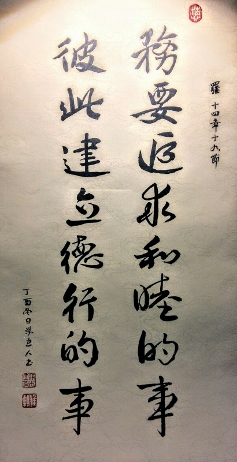 羅十四章十九節
務要追求和睦的事
彼此建立德行的事
丁酉冬日